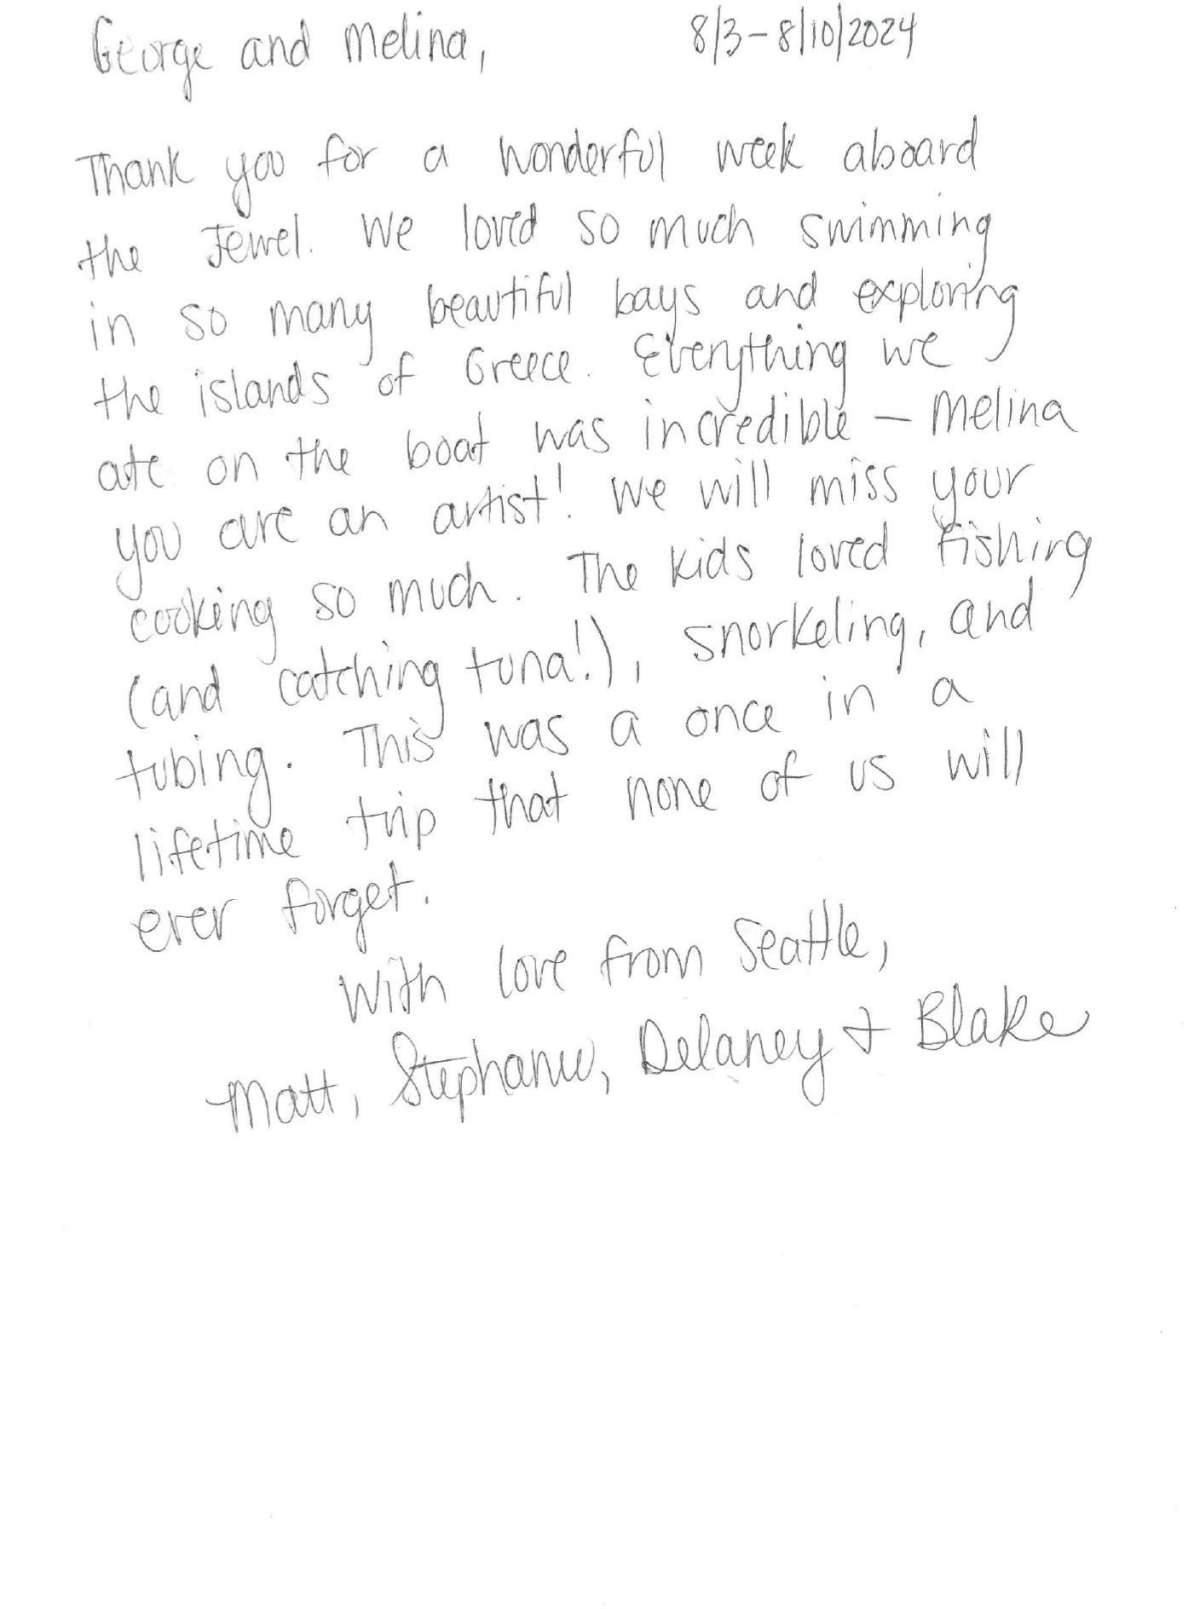 George and Melina, 8/3-8/10/2024
Thank you for a wonderful week aboard
the Jewel. We loved so much swimming
in so many beautiful bays and exploring
the islands of Greece. Everything we
ate on the boat was incredible - Melina
you are an artist! We will miss your
cooking so much. The kids loved fishing
(and catching tuna!), snorkeling, and
tubing. This was a once in a
lifetime trip that none of us will
ever forget.
With love from Seattle,
Matt, Stephanie, Delaney & Blake